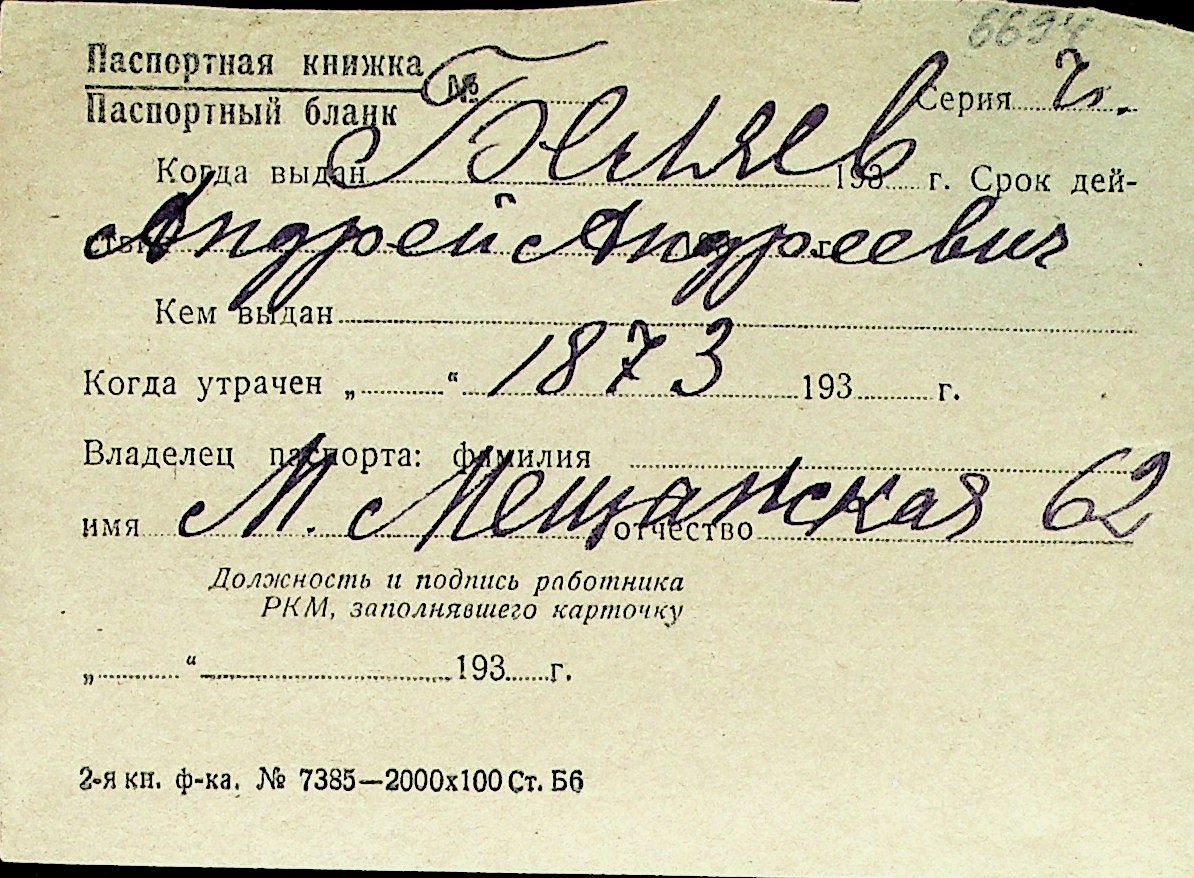 6694
Паспортная книжка № Серия
Паспортный бланк
Когда выдан 193 г. Срок дей-
ствия 193 г.
Андрей Андреевич
Кем выдан
Когда утрачен „ “ 193 г.
1873
Владелец паспорта: фамилия
имя отчество
М. Мещанская 62
Должность и подпись работника
РКМ, заполнявшего карточку
„ “ 193 г.
2-я кн. ф-ка. № 7385—2000х100 Ст. Б6